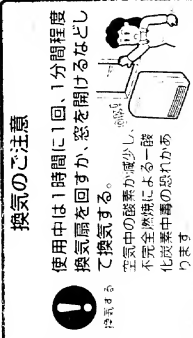 換気のご注意
使用中は1時間に1回、1分間程度
換気扇を回すか、窓を開けるなどし
て換気する。
換気する
空気中の酸素が減少し、
不完全燃焼による一酸
化炭素中毒の恐れがあ
ります